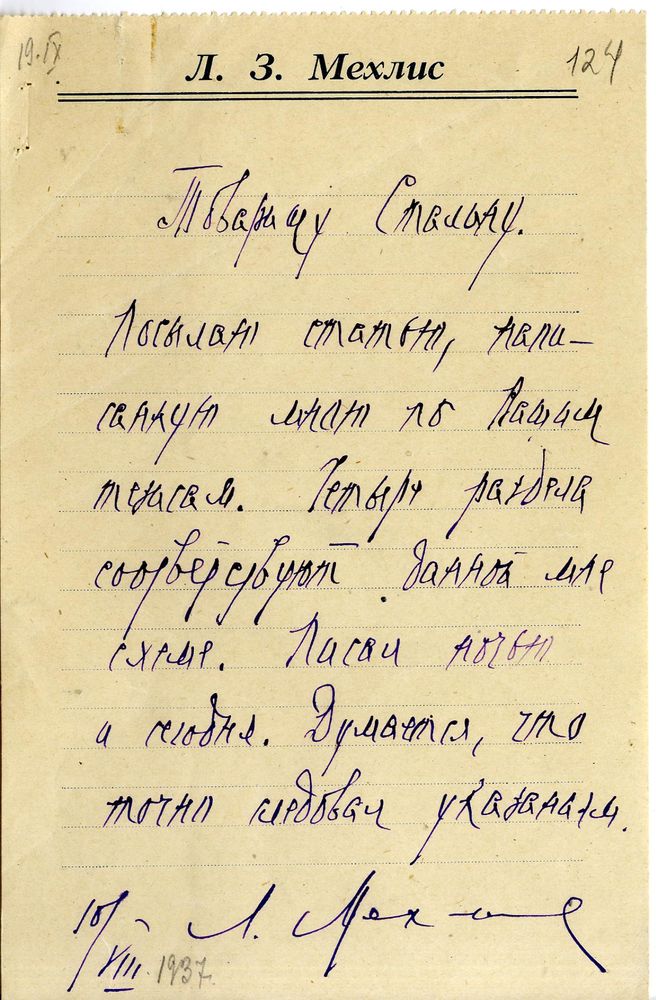 19.IX
Л. З. Мехлис
124
Товарищу Сталину.
Посылаю статью, напи-
санную мною по Вашим
тезисам. Четыре раздела
соответствуют данной мне
схеме. Писал ночью
и сегодня. Думается, что
точно следовал указаниям.
10/VIII. 1937 Л. Мехлис